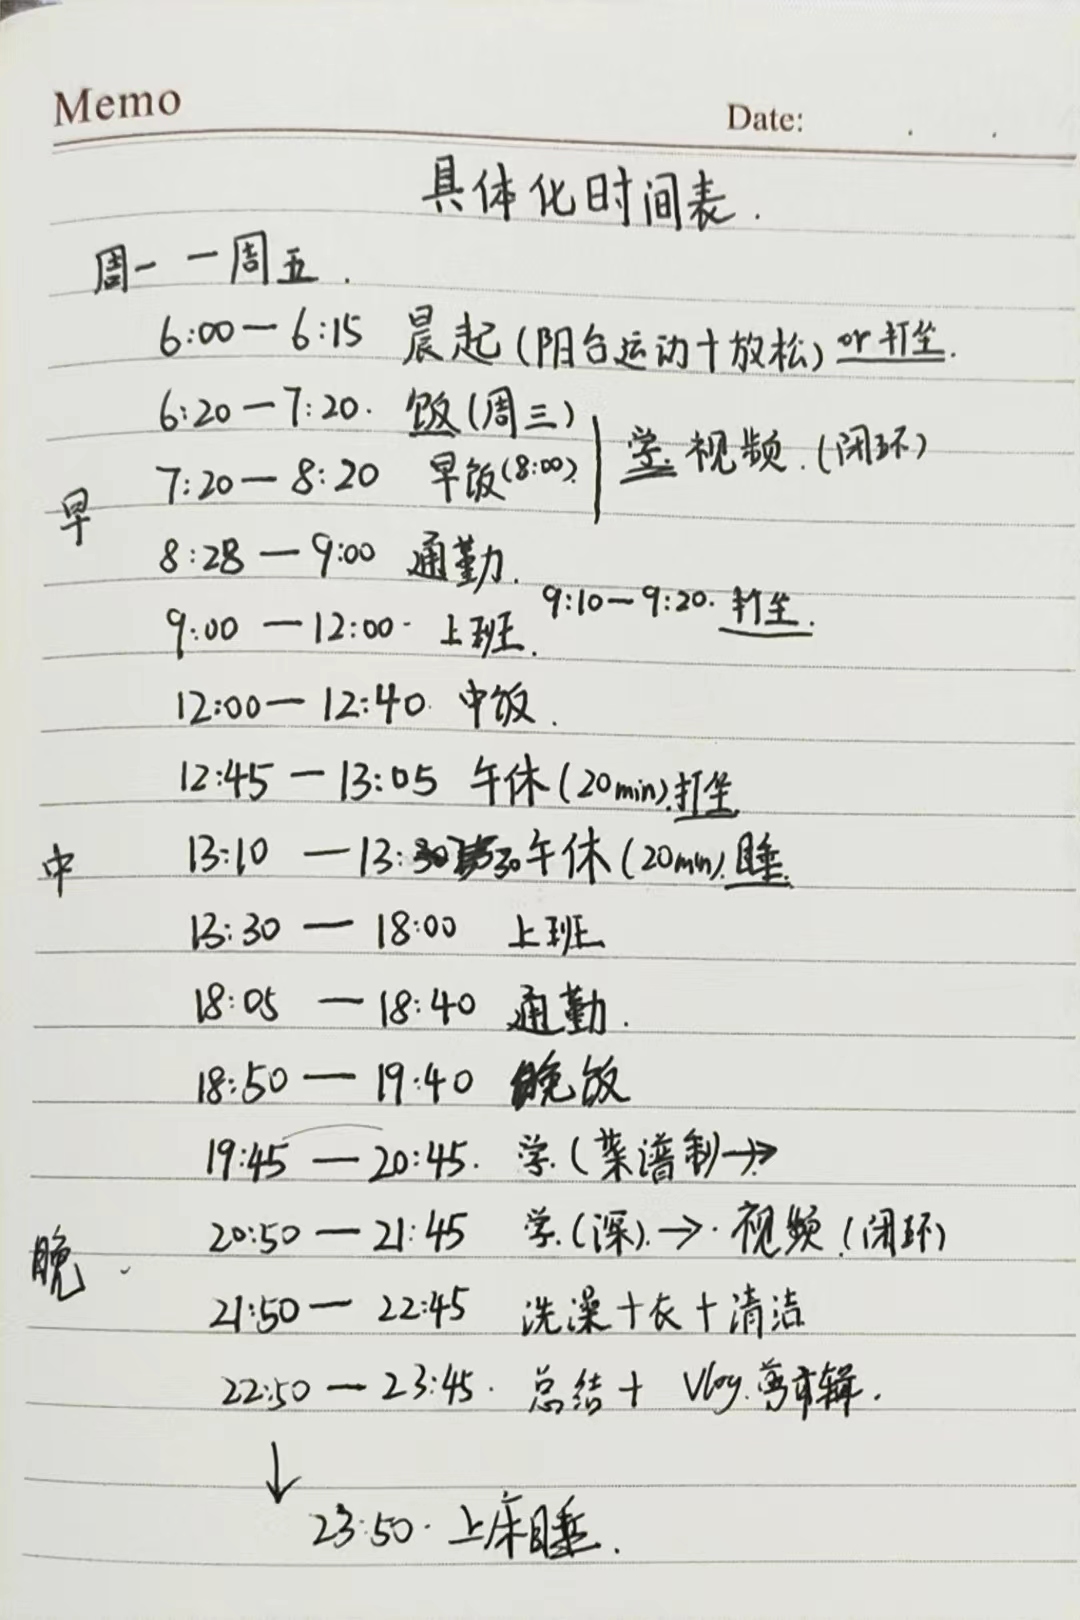 Memo
Date:
具体化时间表.
周一一周五.
6:00—6:15 晨起(阳台运动+放松) or 打坐.
6:20—7:20. 饭(周三)
学. 视频.(闭环)
7:20—8:20 早饭(8:00).
早
8:28—9:00 通勤.
9:10—9:20. 打坐.
9:00—12:00. 上班.
12:00—12:40. 中饭.
12:45—13:05 午休(20min).打坐
中
13:10—13:30午休(20min).睡.
13:30—18:00 上班
18:05—18:40 通勤.
18:50—19:40 晚饭
19:45—20:45. 学.(菜谱制→
20:50—21:45 学.(深).→.视频.(闭环)
晚.
21:50—22:45 洗澡+衣+清洁
22:50—23:45. 总结+ Vlog.剪辑.
↓
23:50. 上床睡.